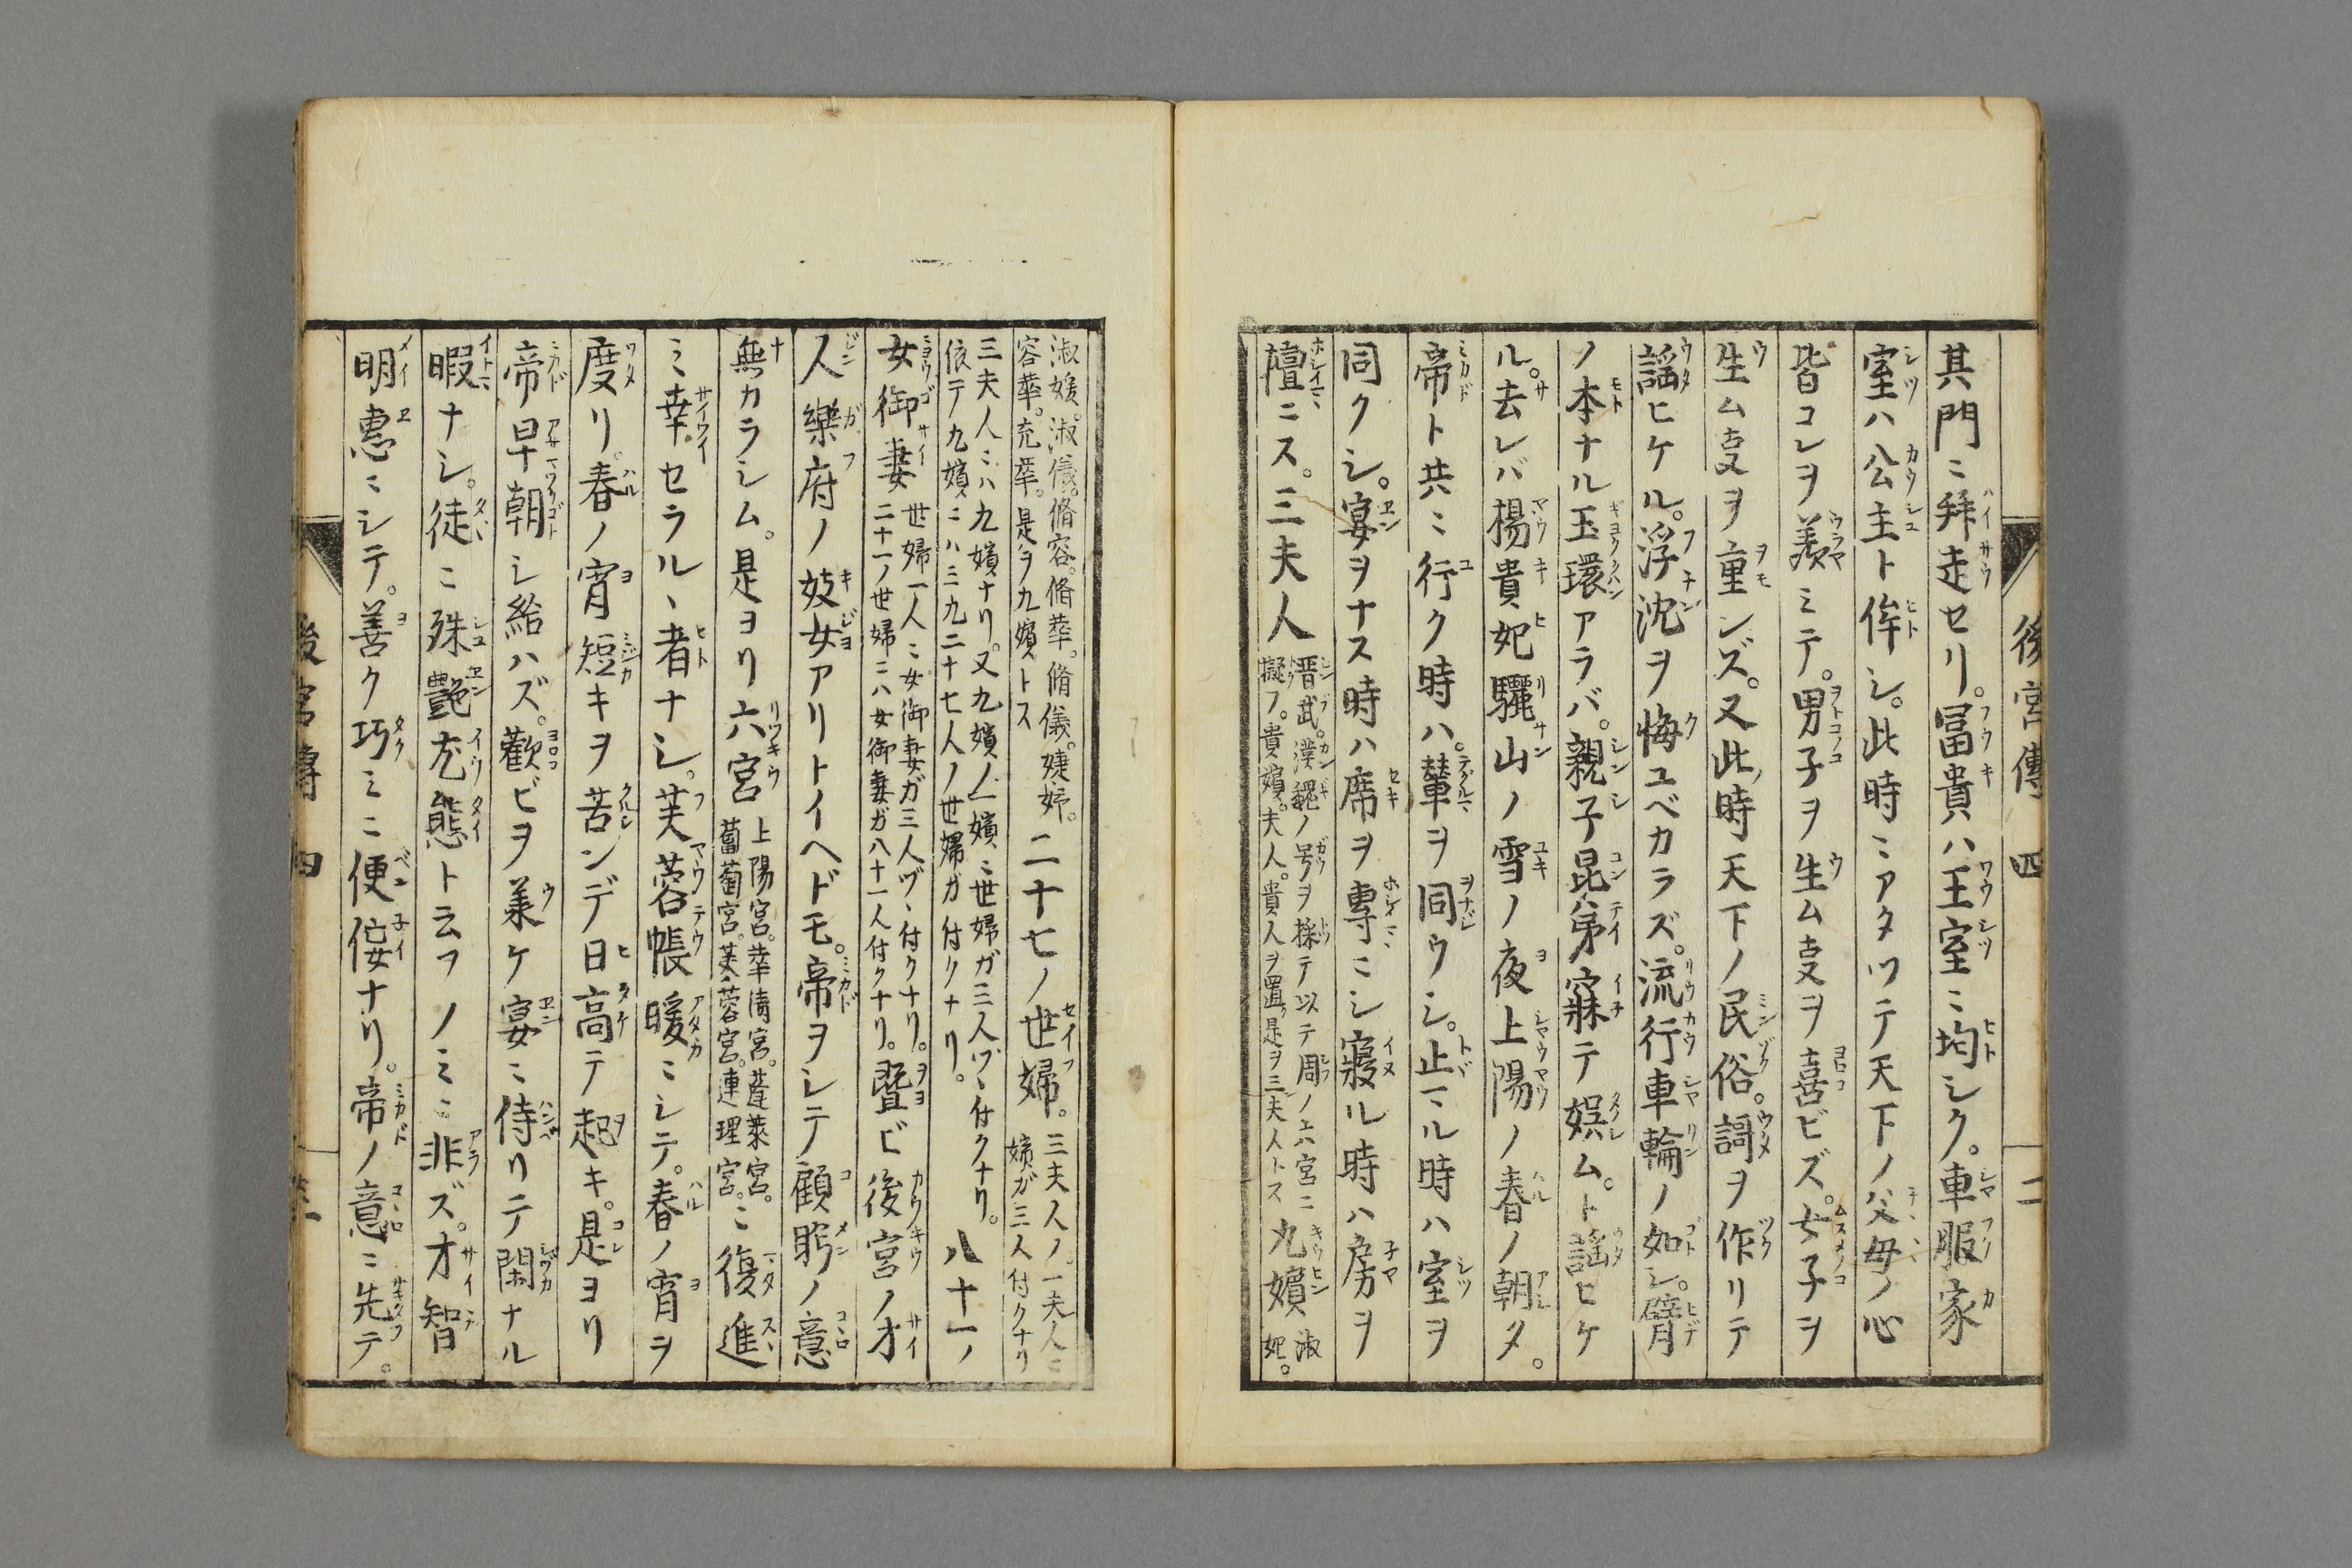 後宮傳 四 二
其門ニ拜走セリ。冨貴ハ王室ニ均シク。車服家
室ハ公主ト侔シ。此時ニアタツテ天下ノ父母ノ心
皆コレヲ羨ミテ。男子ヲ生ム叓ヲ喜ビズ。女子ヲ
生ム叓ヲ重ンズ。又此時天下ノ民俗。謌ヲ作リテ
謡ヒケル。浮沈ヲ悔ユベカラズ。流行車輪ノ如シ。臂
ノ本ナル玉環アラバ。親子昆弟寐テ娯ム。ト謡ヒケ
ル。去レバ楊貴妃驪山ノ雪ノ夜上陽ノ春ノ朝タ。
帝ト共ニ行ク時ハ。輦ヲ同ウシ。止マル時ハ室ヲ
同クシ。宴ヲナス時ハ席ヲ專ニシ寢ル時ハ房ヲ
擅ニス。三夫人 晋武。漢魏ノ号ヲ採テ以テ周ノ六宮ニ擬フ。貴嬪。夫人。貴人ヲ置。是ヲ三夫人トス 九嬪 淑妃。
淑媛。淑儀。脩容。脩華。脩儀。婕妤。容華。充華。是ヲ九嬪トス 二十七ノ世婦。三夫人ノ。一夫人ニ嬪ガ三人付クナリ
三夫人ニハ九嬪ナリ。又九嬪ノ一嬪ニ世婦ガ三人ヅヽ付クナリ。依テ九嬪ニハ三九二十七人ノ世婦ガ付クナリ。 八十一ノ
女御妻 世婦一人ニ女御妻ガ三人ヅヽ付クナリ。二十一ノ世婦ニハ女御妻ガ八十一人付クナリ。 曁ビ後宮ノ才
人樂府ノ妓女アリトイヘドモ。帝ヲシテ顧眄ノ意
無カラシム。是ヨリ六宮 上陽宮。華清宮。蓬莱宮。蔔萄宮。芙蓉宮。連理宮。 ニ復進
ミ幸セラルヽ者ナシ。芙蓉帳暖ニシテ。春ノ宵ヲ
度リ。春ノ宵短キヲ苦ンデ日高テ起キ。是ヨリ
帝早朝シ給ハズ。歡ビヲ美ケ宴ニ侍リテ閑ナル
暇ナシ。徒ニ殊艶尤態ト云フノミニ非ズ。才智
明惠ニシテ。善ク巧ミニ便佞ナリ。帝ノ意ニ先テ。
後宮傳 四